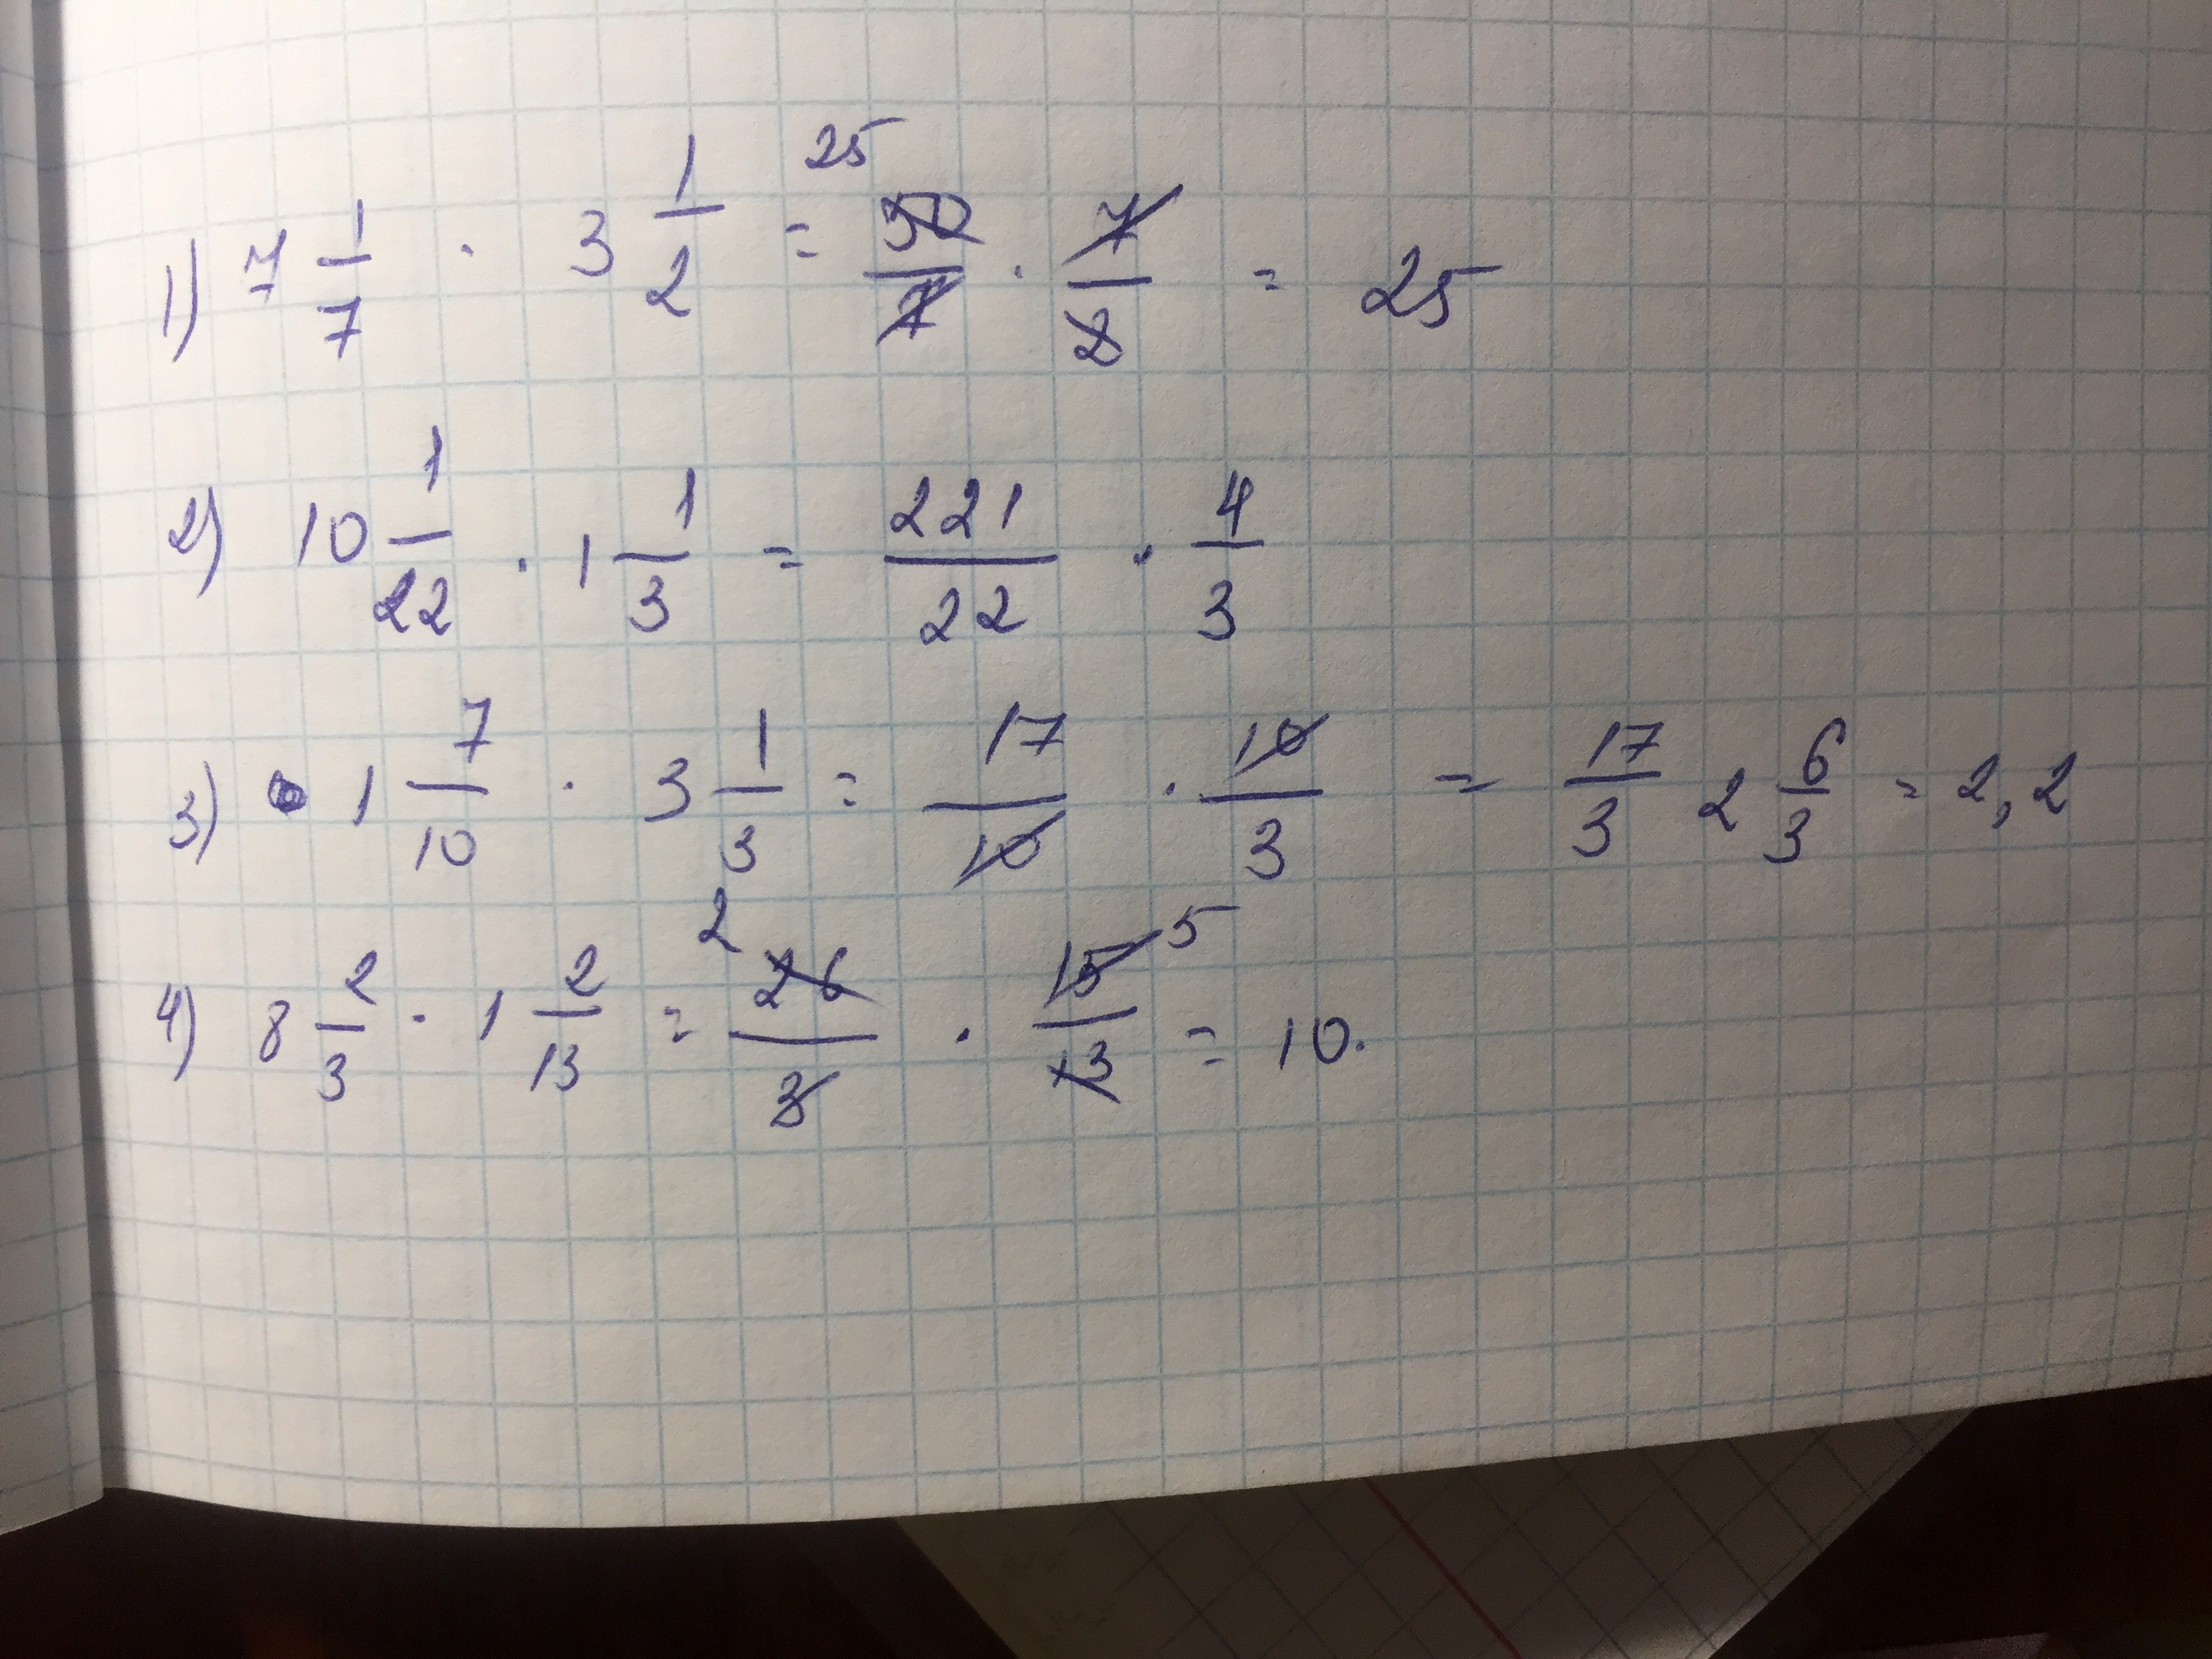 1) 7 1/7 · 3 1/2 = 25 50/7 · 7/2 = 25
2) 10 1/22 · 1 1/3 = 221/22 · 4/3
3) 1 7/10 · 3 1/3 = 17/10 · 10/3 = 17/3 2 6/3 = 2,2
4) 8 2/3 · 1 2/13 = 2 26/3 · 15/13 5 = 10.